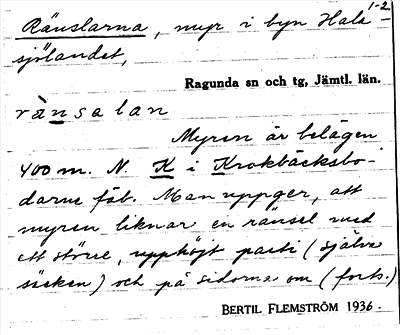 1-2
Ränslarna, myr i byn Hals-
sjölandet,
Ragunda sn och tg, Jämtl. län.
rànsalan
Myren är belägen
400 m. N. K i Krokbäcksbo-
darne fäb. Man uppger, att
myren liknar en ränsel med
ett större, upphöjt parti (själva
säcken) och på sidorna om (forts.)
BERTIL FLEMSTRÖM 1936.